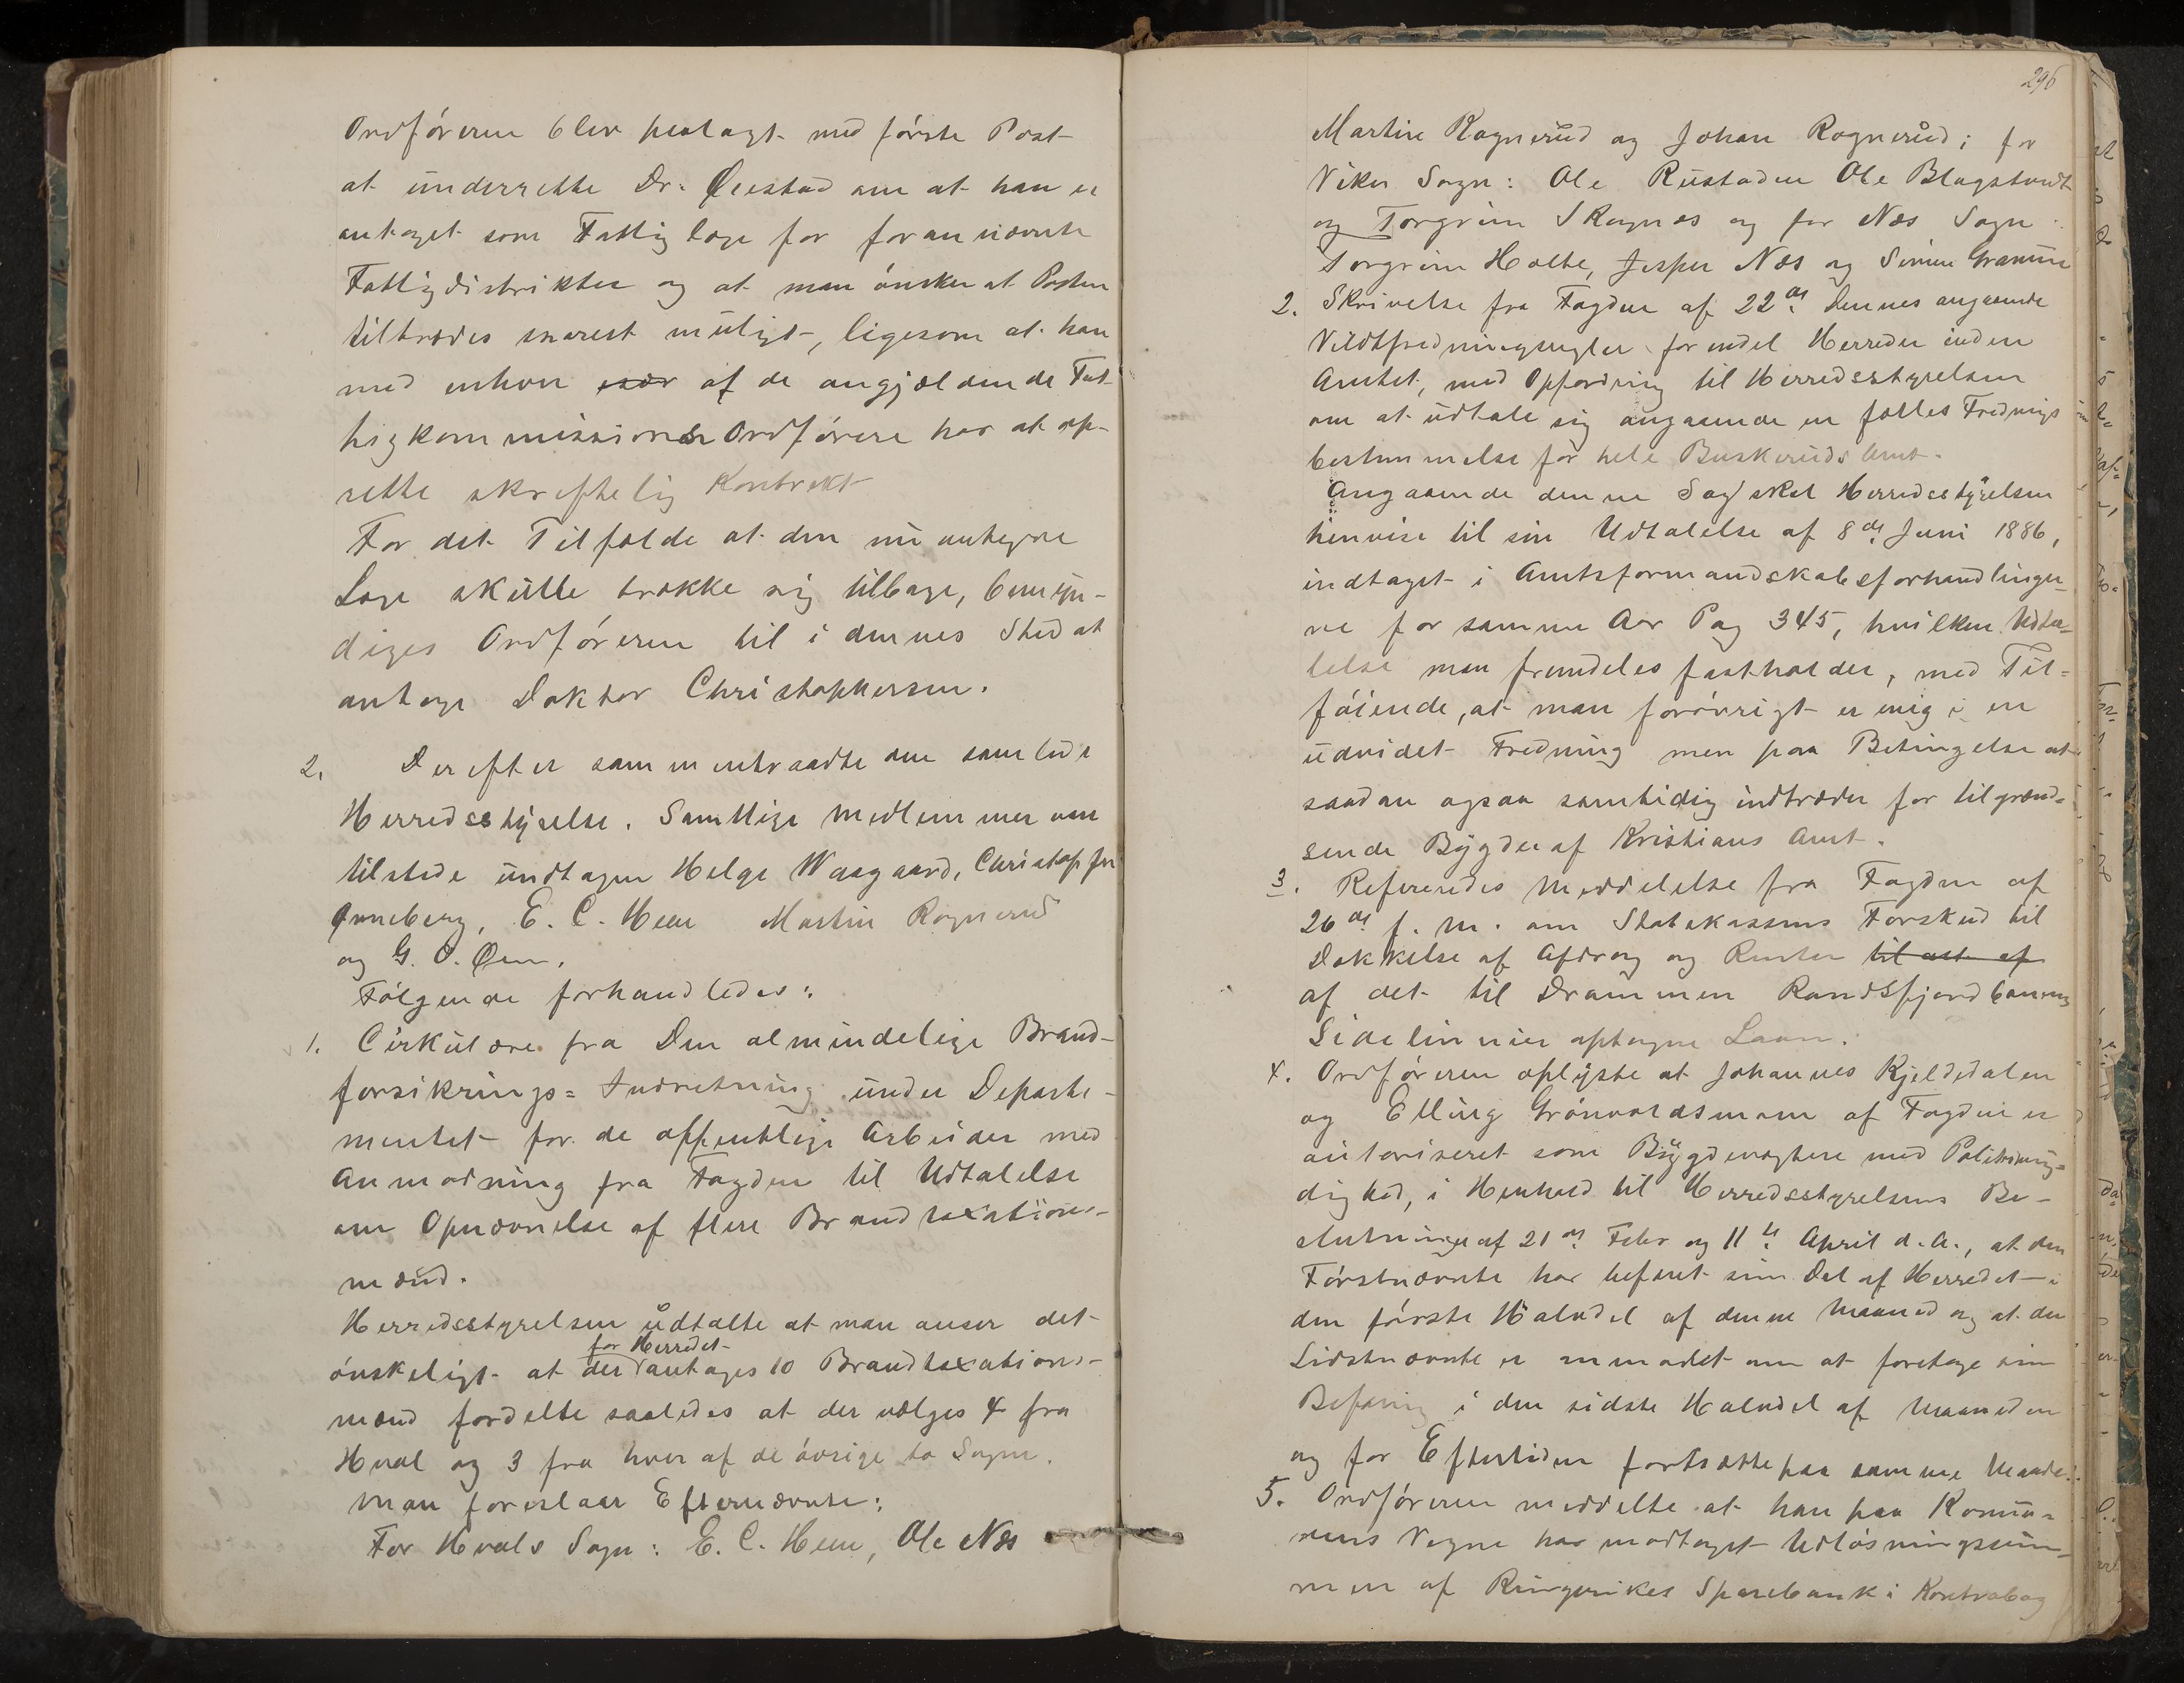 Ordføreren blev paalagt med første Post
at underrette Dr. Ørestad om at han er
antaget som Fattiglæge for forannævnte
Fattigdistrikter og at man ønsker at Posten
tiltrædes snarest muligt, ligesom at han
med enhver især af de angjældende Fat-
tigkommissioners Ordførere har at op-
rette skriftelig Kontrakt
For det Tilfælde at den nu antagne
Læge skulle trække sig tilbage, bemyn-
diges Ordføreren til i dennes Sted at
antage Doktor Christophersen.
2. Derefter sammentraadte den samlede
Herredsstyrelse. Samtlige Medlemmer var
tilstede undtagen Helge Waagaard, Christopher
Enneberg, E. C. Heen Martin Rognerud
og G. O. Øen.
Følgende forhandledes:
1. Cirkulære fra Den almindelige Brand-
forsikrings-Indretning under Departe-
mentet for de offentlige Arbeider med
Anmodning fra Fogden til Udtalelse
om Opnævnelse af flere Brandtaxations-
mænd.
Herredsstyrelsen udtalte at man anser det
for Herredet
ønskeligt at der antages 10 Brandtaxations-
mænd fordelte saaledes at der vælges 4 fra
Hval og 3 fra hver af de øvrige to Sogne.
Man foreslaar Efternævnte:
For Hvals Sogn: E. C. Heen, Ole Næs
296
Martin Rognerud og Johan Rognerud; for
Viker Sogn: Ole Rustaden Ole Blagstvedt
og Torgrim Skagnæs og for Næs Sogn
Torgrim Holte, Jesper Næs og Simen Gramun
2. Skrivelse fra Fogden af 22de dennes angaaende
Vildtfredningsregler for endel Herreder inden
Amtet, med Opfordring til Herredsstyrelsen
om at udtale sig angaaende en fælles Frednings
bestemmelse for hele Buskeruds Amt.
Angaaende denne Sag skal Herredsstyrelsen
henvise til sin Udtalelse af 8de Juni 1886,
indtaget i Amtsformandskabsforhandlinger-
ne for samme Aar Pag 345, hvilken Udta-
lelse man fremdeles fastholder, med Til-
føiende, at man forøvrigt er enig i en
udvidet Fredning men paa Betingelse at
saadan ogsaa samtidig indtræder for tilgrænd-
sende Bygder af Kristians Amt.
3. Refereredes Meddelelse fra Fogden af
26de f. M. om Statskassens Forskud til
Dækkelse af Afdrag og Renter til att af
af det til Drammen Randsfjordbanens
Sidelinnier optagne Laan.
4. Ordføreren oplyste at Johannes Kjeldedalen
og Elling Grønvoldsmoen af Fogden er
autoriseret som Bygdevægtere med Politimyn-
dighed, i Henhold til Herredsstyrelsens Be-
slutninger af 21de Febr og 11te April d. A., at den
Førstnævnte har befaret sin Del af Herredet i
den første Halvdel af denne Maaned og at den
Sidstnævnte er anmodet om at foretage sin
Befaring i den sidste Halvdel af Maaneden
og for Eftertiden fortsætte paa samme Maade.
5. Ordføreren meddelte at han paa Komu-
nens Vegne har modtaget Udløsningssum-
men af Ringerikes Sparebank i Kontrabog